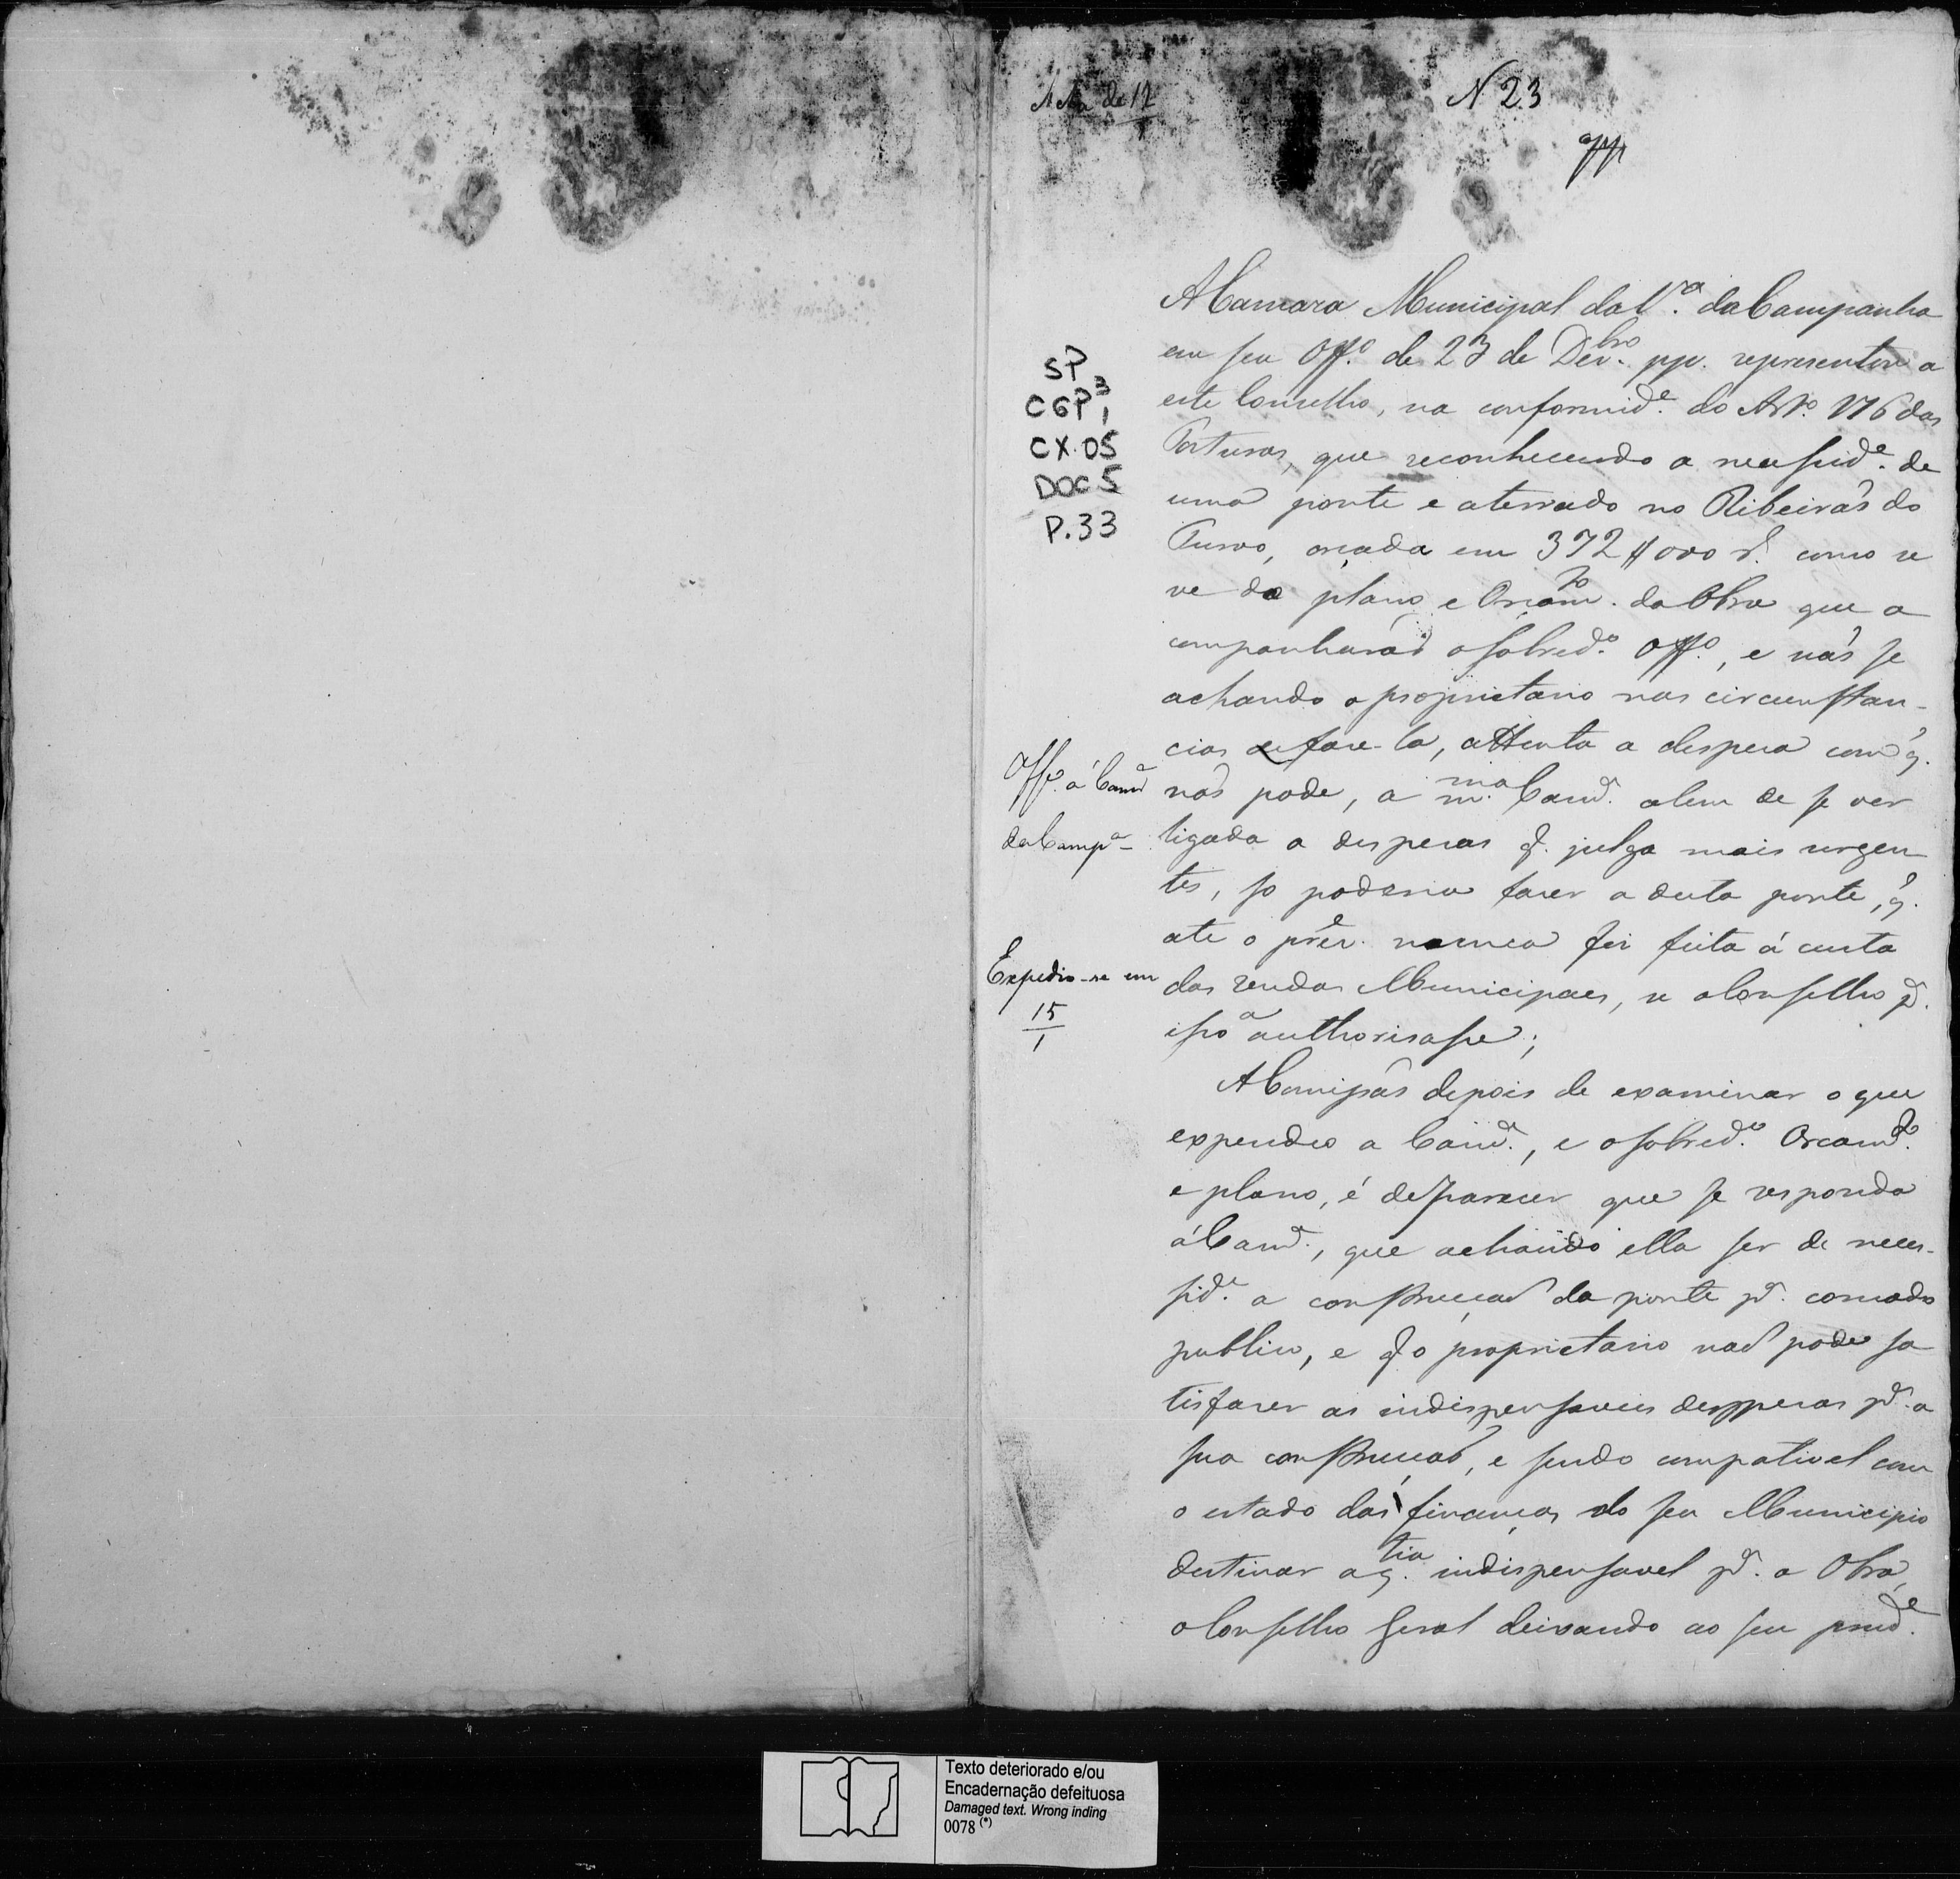 Acta de 12
N 23
SP
CGP³,
CX.05
DOC 5
P.33
A Camara Municipal da V.ª da Campanha
em seu Off.º de 23 de Dez.bro pp. representou a
este Conselho, na conformid.e do Art.º 176 das
Posturas, que reconhecendo a necessid.e de
uma ponte e aterrado no Ribeirão do
Turvo, orçada em 372$000 r.s como se
ve do plano e Orçam.to da Obra que a
companharão o sobred.º Off.º, e não se
achando o proprietario nas circunstan-
cias de faze-la, attenta a despeza com q.
não pode, a m.ma Cam.ª alem de se ver
ligada a despezas q. julga mais urgen
tes, so poderia fazer a deita ponte, q.
ate o prez.e nunca foi feita á custa
das rendas Municipaes, se o Conselho p.ª
isso a authorisasse;
Off.º á Cam.ª
da Camp.ª
Expedio-se em
15
1
A Comissão depois de examinar o que
expendeo a Cam.ª, e o sobred.º Orcam.to
e plano, é de parecer que se responda
á Cam.ª, que achando ella ser de neces-
sid.e a construcção da ponte p.ª comodo
publico, e q. o proprietario não pode sa
tisfazer as indispensaveis despezas p.ª a
sua construcção, e sendo compativel com
o estado das finanças do seu Municipio
destinar a q.tia indispensavel p.ª a Obra,
o Conselho Geral deixando ao seu prud.e
Texto deteriorado e/ou
Encadernação defeituosa
Damaged text. Wrong inding
0078 (*)